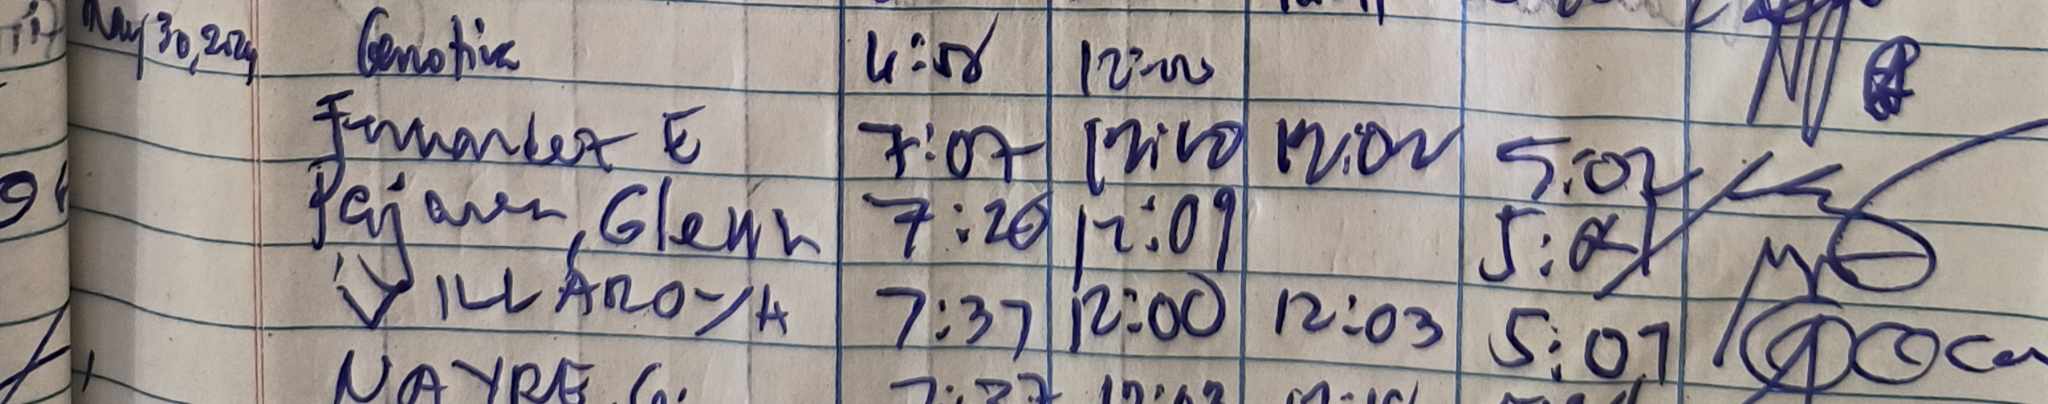 May 30, 2024 Genotiva 4:58 12:00
Fernandez E 7:07 12:00 12:02 5:02
Pajaren, Glenn 7:26 12:09 5:01
VILLAROYA 7:37 12:00 12:03 5:07
NAYRE, G. 7:37